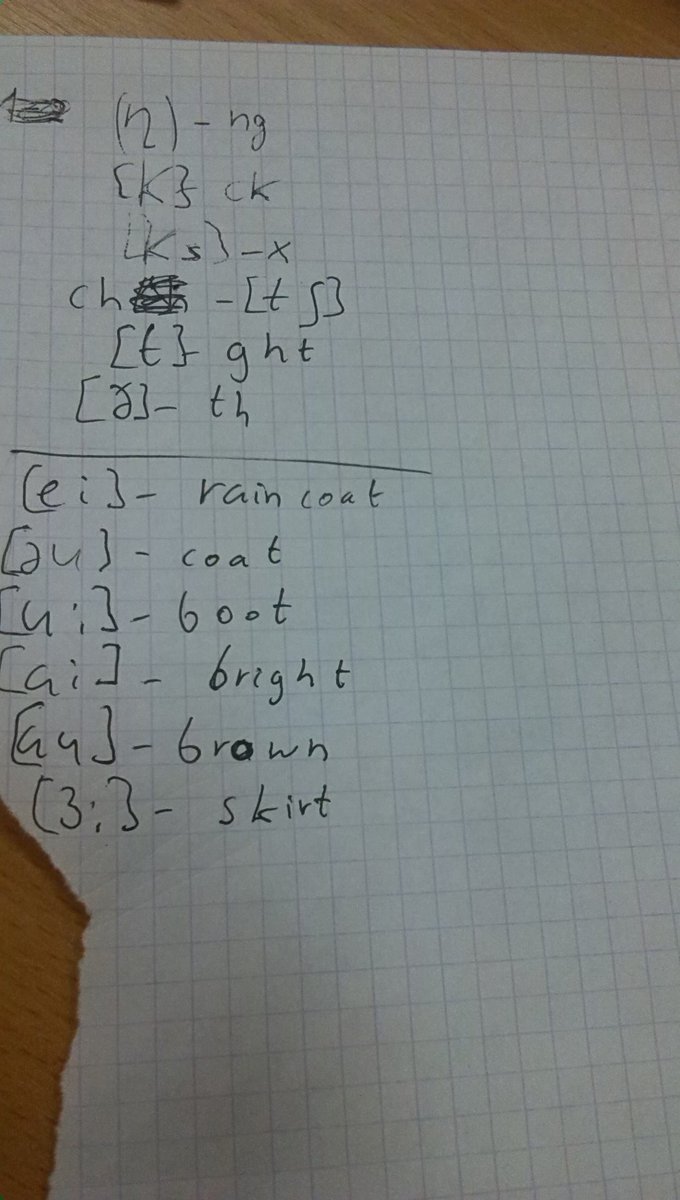 (η) - ng
{k} ck
[ks} - x
ch - [tʃ}
[t} ght
[ð] - th
[ei} - raincoat
[əu} - coat
[u:} - boot
[ai] - bright
[au} - brown
[3:} - skirt